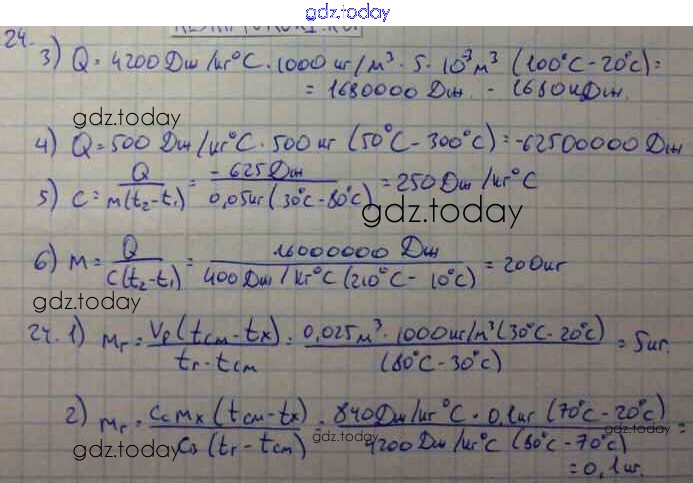 gdz.today
24.
3) Q = 4200 Дж/кг°С · 1000 кг/м³ · 5 · 10⁻³ м³ (100°С - 20°С) =
= 1680000 Дж. - 1680кДж.
gdz.today
4) Q = 500 Дж/кг°С · 500 кг (50°С - 300°С) = -62500000 Дж
5) c = Q / m(t₂-t₁) = -625Дж / 0,05кг (30°С-80°С) = 250 Дж/кг°С
gdz.today
6) m = Q / c(t₂-t₁) = 16000000 Дж / 400Дж/кг°С (210°С - 10°С) = 200кг
gdz.today
24. 1) mг = Vρ(tсм-tх) / tг-tсм = 0,025м³ · 1000кг/м³ (30°С-20°С) / (80°С-30°С) = 5кг.
2) mг = Cc mх (tсм-tх) / Cв (tг-tсм) = 840Дж/кг°С · 0,1кг (70°С-20°С) / 4200 Дж/кг°С (80°С-70°С) =
gdz.today gdz.today
= 0,1кг.